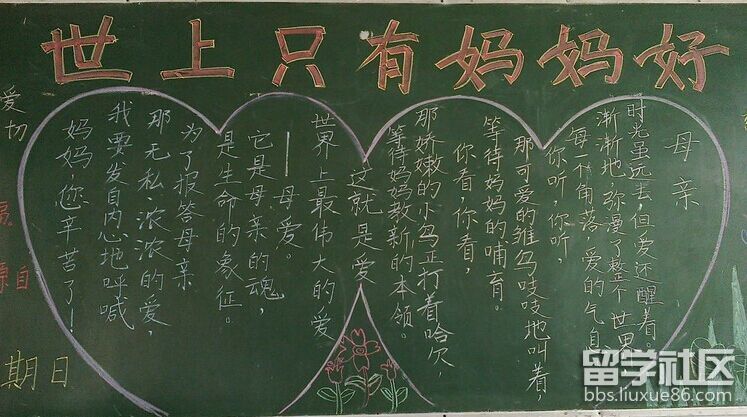 世上只有妈妈好
母亲
时光虽远去，但爱还醒着。
渐渐地，弥漫了整个世界
每一个角落，爱的气息
你听，你听，
那可爱的雏鸟吱吱地叫着，
等待妈妈的哺育。
你看，你看，
那娇嫩的小鸟正打着哈欠，
等待妈妈教新的本领。
这就是爱
世界上最伟大的爱
——母爱。
它是母亲的魂，
是生命的象征。
为了报答母亲
那无私、浓浓的爱，
我要发自内心地呼喊
妈妈，您辛苦了！
爱切
自
期日
留学社区
bbs.liuxue86.com